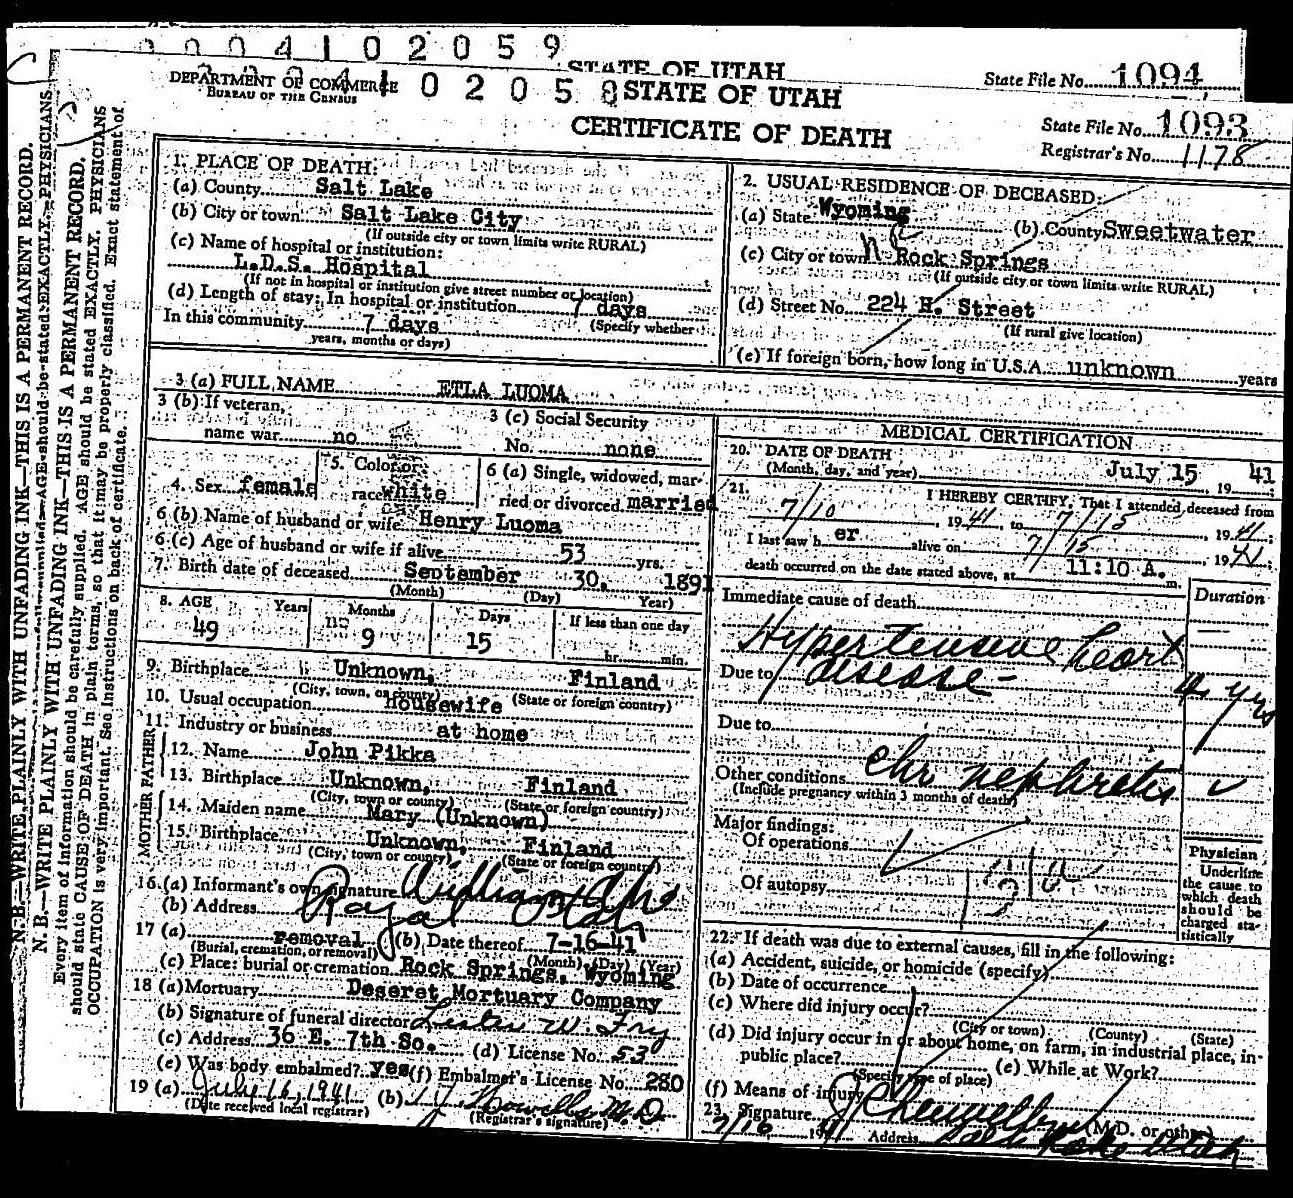 0 0 0 4 1 0 2 0 5 9
STATE OF UTAH
State File No. 1094
DEPARTMENT OF COMMERCE
BUREAU OF THE CENSUS
1 0 2 0 5 8
STATE OF UTAH
CERTIFICATE OF DEATH
State File No. 1093
Registrar's No. 1178
N.B.—WRITE PLAINLY WITH UNFADING INK—THIS IS A PERMANENT RECORD.
N. B.—WRITE PLAINLY WITH UNFADING INK—THIS IS A PERMANENT RECORD.
Every item of information should be carefully supplied. AGE should be stated EXACTLY. PHYSICIANS
should state CAUSE OF DEATH in plain terms, so that it may be properly classified. Exact statement of
OCCUPATION is very important. See instructions on back of certificate.
1. PLACE OF DEATH:
(a) County Salt Lake
(b) City or town Salt Lake City
(If outside city or town limits write RURAL)
(c) Name of hospital or institution:
L.D.S. Hospital
(If not in hospital or institution give street number or location)
(d) Length of stay: In hospital or institution 7 days
In this community 7 days (Specify whether
years, months or days)
2. USUAL RESIDENCE OF DECEASED:
(a) State Wyoming (b) County Sweetwater
(c) City or town Rock Springs
(If outside city or town limits write RURAL)
(d) Street No. 224 H. Street
(If rural give location)
(e) If foreign born, how long in U.S.A. unknown years
3 (a) FULL NAME ETLA LUOMA
3 (b) If veteran,
name war no
3 (c) Social Security
No. none
4. Sex female
5. Color or
race white
6 (a) Single, widowed, mar-
ried or divorced married
6 (b) Name of husband or wife Henry Luoma
6 (c) Age of husband or wife if alive 53 yrs.
7. Birth date of deceased September 30. 1891
(Month) (Day) Year)
8. AGE Years Months Days If less than one day
49 9 15 hr. min.
9. Birthplace Unknown, Finland
(City, town, or county) (State or foreign country)
10. Usual occupation Housewife
11. Industry or business at home
FATHER
12. Name John Pikka
13. Birthplace Unknown, Finland
(City, town or county) (State or foreign country)
MOTHER
14. Maiden name Mary (Unknown)
15. Birthplace Unknown, Finland
(City, town or county) (State or foreign country)
16. (a) Informant's own signature William
(b) Address Royal Utah
17 (a) removal (b) Date thereof 7-16-41
(Burial, cremation, or removal) (Month) (Day) (Year)
(c) Place: burial or cremation Rock Springs, Wyoming
18 (a) Mortuary Deseret Mortuary Company
(b) Signature of funeral director Lester W. Fry
(c) Address 36 E. 7th So. (d) License No. 53
(e) Was body embalmed? yes (f) Embalmer's License No. 280
19 (a) July 16, 1941 (b) M.D.
(Date received local registrar) (Registrar's signature)
MEDICAL CERTIFICATION
20. DATE OF DEATH
(Month, day, and year) July 15, 1941
21. I HEREBY CERTIFY, That I attended deceased from
7/10, 1941, to 7/15, 1941;
I last saw h er alive on 7/15 1941;
death occurred on the date stated above, at 11:10 A. m.
Immediate cause of death Duration
Hypertensive heart
Due to disease - 4 yrs
Due to
Other conditions chr nephritis
(Include pregnancy within 3 months of death)
Major findings:
Of operations
Of autopsy
Physician
Underline
the cause to
which death
should be
charged sta-
tistically
22. If death was due to external causes, fill in the following:
(a) Accident, suicide, or homicide (specify)
(b) Date of occurrence
(c) Where did injury occur?
(City or town) (County) (State)
(d) Did injury occur in or about home, on farm, in industrial place, in-
public place? (e) While at Work?
(Specify type of place)
(f) Means of injury
23. Signature (M.D. or other)
7/16 1941 Address Salt Lake Utah